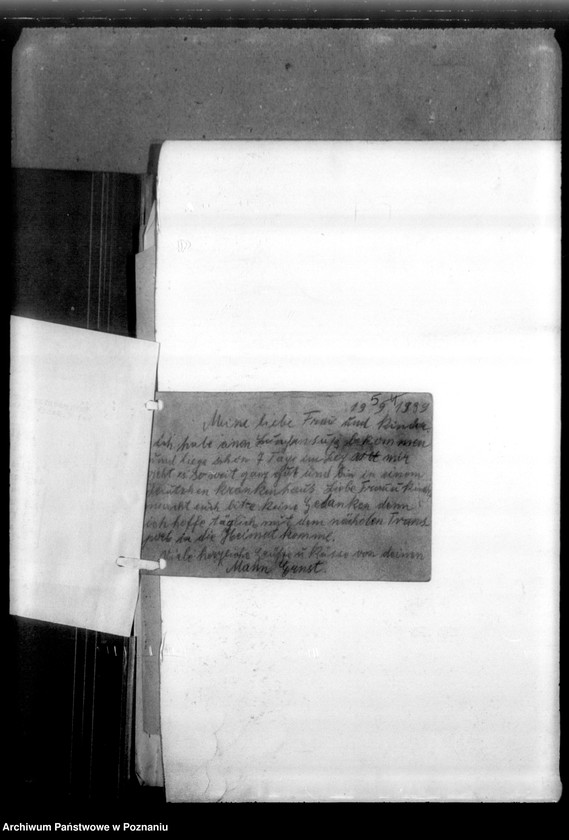 1939
Meine liebe Frau und Kinder
Ich habe einen bekommen
und liege schon 7 Tage im mir
geht es soweit ganz gut und bin in einem
deutschen Krankenhaus. Liebe Frau u Kin
macht euch bitte keine Gedanken denn
ich hoffe täglich mit dem nächsten Trans
port in die Heimat komme.
Viele herzliche Grüsse u Küsse von deinen
Mann Ernst.
Archiwum Państwowe w Poznaniu